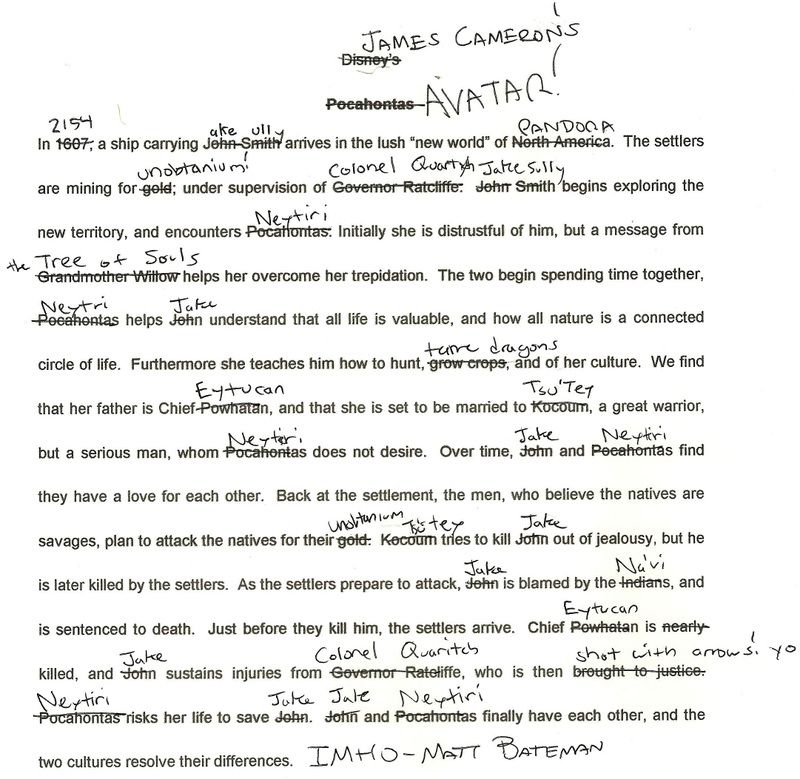 JAMES CAMERON'S
Disney's
Pocahontas AVATAR!
2154 ake ully PANDORA
In 1607, a ship carrying John Smith arrives in the lush "new world" of North America. The settlers
unobtanium! Colonel Quartych Jake Sully
are mining for gold; under supervision of Governor Ratcliffe. John Smith begins exploring the
Neytiri
new territory, and encounters Pocahontas. Initially she is distrustful of him, but a message from
the Tree of Souls
Grandmother Willow helps her overcome her trepidation. The two begin spending time together,
Neytri Jake
Pocahontas helps John understand that all life is valuable, and how all nature is a connected
tame dragons
circle of life. Furthermore she teaches him how to hunt, grow crops, and of her culture. We find
Eytucan Tsu'Tey
that her father is Chief Powhatan, and that she is set to be married to Kocoum, a great warrior,
Neytiri Jake Neytiri
but a serious man, whom Pocahontas does not desire. Over time, John and Pocahontas find
they have a love for each other. Back at the settlement, the men, who believe the natives are
unobtanium Tsu'tey Jake
savages, plan to attack the natives for their gold. Kocoum tries to kill John out of jealousy, but he
Jake Na'vi
is later killed by the settlers. As the settlers prepare to attack, John is blamed by the Indians, and
Eytucan
is sentenced to death. Just before they kill him, the settlers arrive. Chief Powhatan is nearly
Jake Colonel Quaritch shot with arrows! yo
killed, and John sustains injuries from Governor Ratcliffe, who is then brought to justice.
Neytiri Jake Jake Neytiri
Pocahontas risks her life to save John. John and Pocahontas finally have each other, and the
two cultures resolve their differences. IMHO-MATT BATEMAN